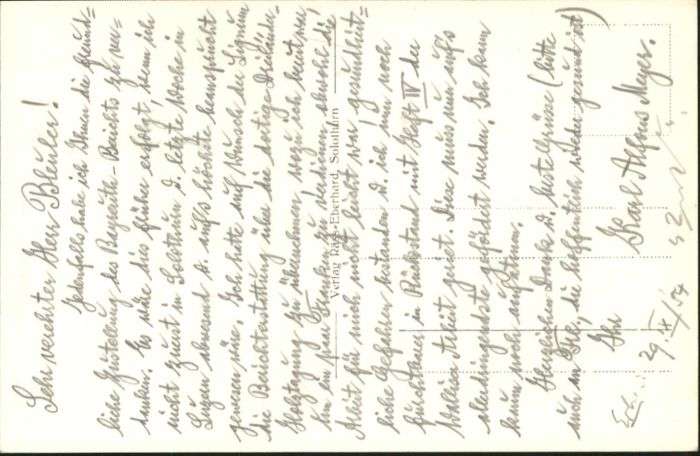 Sehr verehrter Herr Bleuler!
Jedenfalls habe ich Ihnen die freund=
liche Zustellung des Bayreuth-Berichts zu ver-
danken. Es wäre dies früher erfolgt, wenn ich
nicht zuerst in Solothurn u. letzte Woche in
Luzern abwesend u. aufs höchste beansprucht
gewesen wäre. Ich hatte auf Wunsch der Lignum
die Berichterstattung über die dortige Dreiländer-
Holztagung zu übernehmen wozu ich bereit war
um ein paar Franken zu verdienen, obwohl die
Arbeit für mich nicht leicht war, gesundheit=
liche Gefahren bestanden u. ich nun noch
furchtbar in Rückstand mit Heft IV der
Walliser Arbeit geriet. Diese muss nun aufs
allerdringendste gefördert werden. Ich kann
kaum noch aufatmen.
Herzlichen Dank u. beste Grüsse (bitte
auch an Frl., die hoffentlich wieder gesund ist)
Ihr
Karl Alfons Meyer.
29. X/54
Verlag Räss-Eberhard, Solothurn